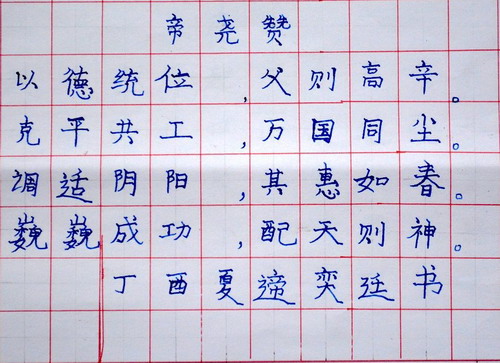 帝尧赞
以德统位,父则高辛。
克平共工,万国同尘。
调适阴阳,其惠如春。
巍巍成功,配天则神。
丁酉夏遆奕廷书